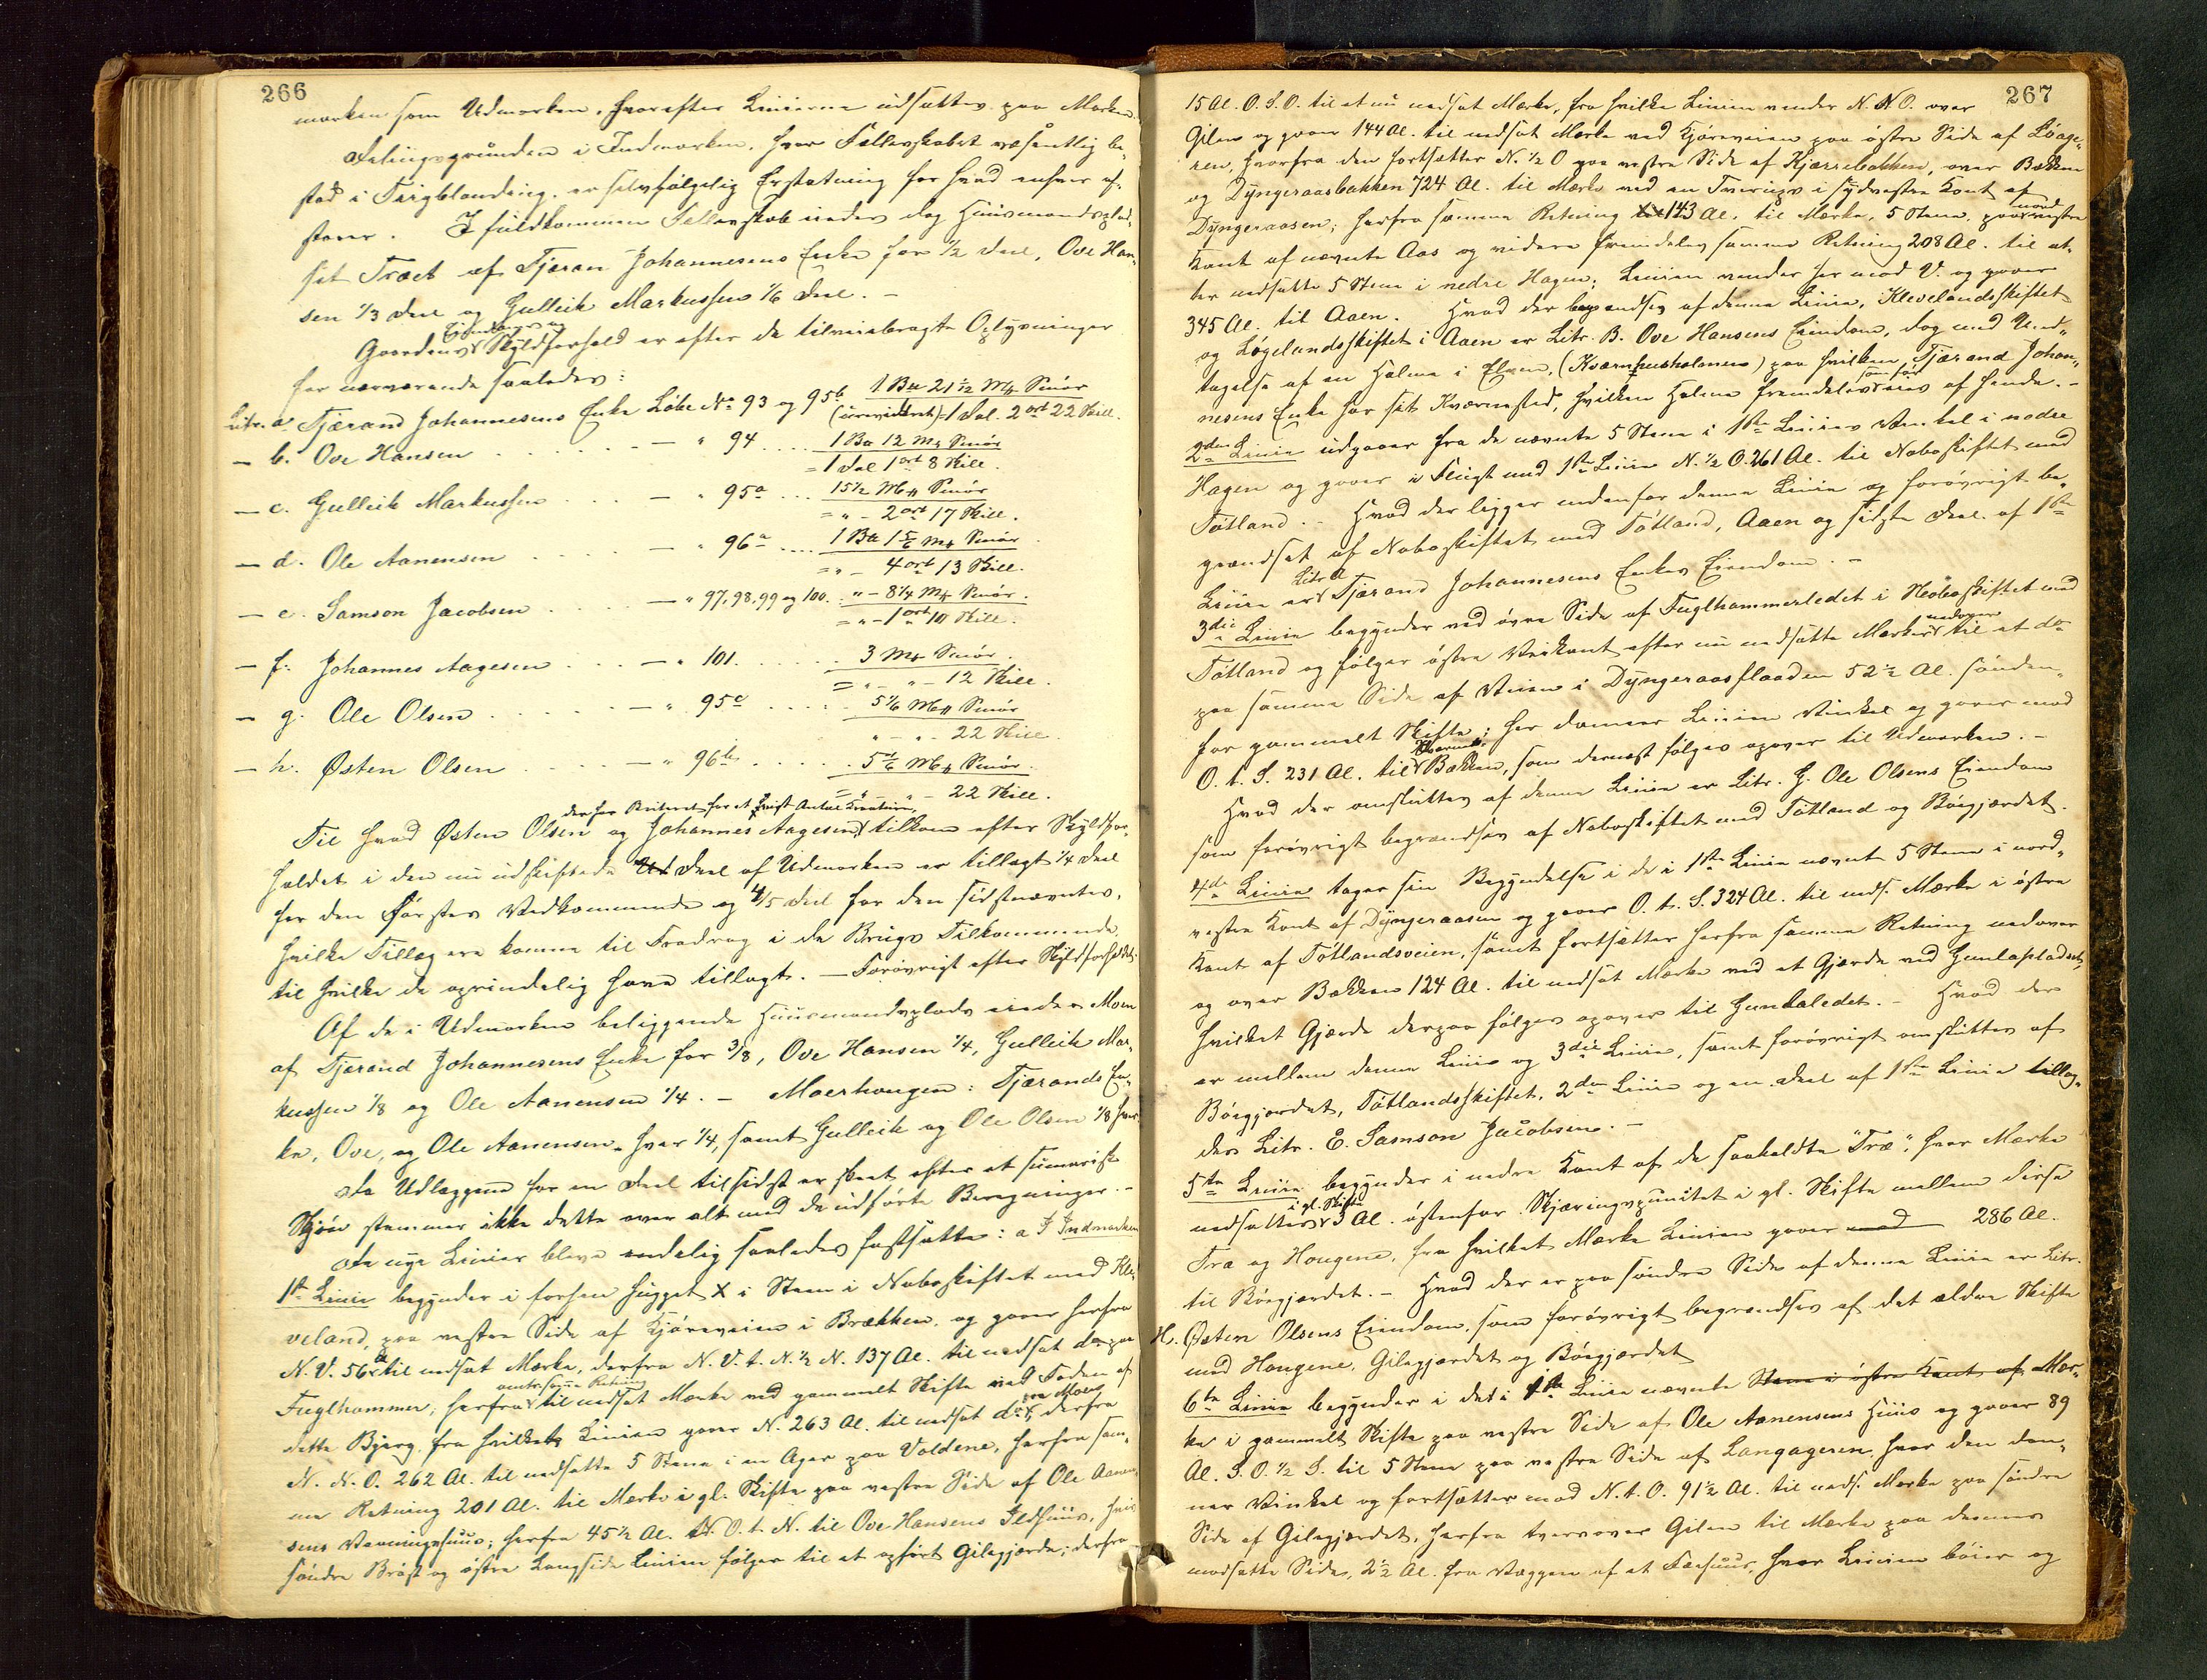 266
marken som Udmarken, hvorefter Linierne udsattes paa Marken.
Delingsgrunden i Indmarken, hvor Fællesskabet væsentlig be-
stod i Teigblanding, er selvfølgelig Erstatning for hvad enhver af-
staaer. I fuldkommen Fællesskab eiedes dog Huusmandsplad-
set Træet af Tjæran Johannesens Enke for 1/2 Deel, Ove Han-
sen 1/3 Deel og Gulleik Markussen 1/6 Deel. —
Gaardens Eiendoms og Skyldforhold er efter de tilveiebragte Oplysninger
for nærværende saaledes:
Litr. a. Tjærand Johannesens Enke Løbe No 93 og 95b 1 Bu 21 1/2 Mk Smör
(urevideret) = 1 Dal. 2 ort 22 Skill.
— b. Ove Hansen . . . . — " 94 . . . . 1 Bu 12 Mk Smör
= 1 Dal 1 ort 8 Skill.
— c. Gulleik Markussen . . . — " 95a . . . 15 1/2 Mk Smör
= " - 2 ort 17 Skill.
— d. Ole Aanensen . . . . — " 96a . . . . 1 Bu 1 5/6 Mk Smör
= " - 4 ort 13 Skill.
— e. Samson Jacobsen . . . . — " 97, 98, 99 og 100. . " - 8 1/4 Mk Smör.
= " - 1 ort 10 Skill.
— f. Johannes Aagesen . . . — " 101. . . . . 3 Mk Smör.
= " - " - 12 Skill.
— g. Ole Olsen . . . . . — " 95c . . . . 5 1/6 Mk Smör
" - " - 22 Skill.
— h. Østen Olsen . . . . — " 96b . . . . . 5 1/6 Mk Smör.
= " - " - 22 Skill.
Til hvad Østen Olsen og Johannes Aagesen, der har Beiteret for et vist Antal Kreature, tilkom efter Skyldfor-
holdet i den nu udskiftede Deel af Udmarken er tillagt 1/4 Deel
for den Førstes Vedkommende og 4/5 Deel for den sidstnævntes,
hvilke Tillæg ere komne til Fradrag i de Brugs Tilkommende,
til hvilke de oprindelig have tillagt. — Forøvrigt efter Skyldforholdet.
Af de i Udmarken beliggende Huusmandsplads eiedes Moen
af Tjærand Johannesens Enke for 3/8, Ove Hansen 1/4, Gulleik Mar-
kussen 1/8 og Ole Aanensen 1/4. — Moerhougen: Tjærands En-
ke, Ove, og Ole Aanensen hver 1/4, samt Gulleik og Ole Olsen 1/8 hver.
Da Udlæggene for en Deel tilsidst er skeet efter et summarisk
Skjön stemmer ikke dette over alt med de udførte Beregninger. —
De nye Linier bleve endelig saaledes fastsatte: a I Indmarken
1ste Linie begynder i forhen hugget X i Steen i Naboskiftet med Kle-
veland, paa vestre Side af Kjøreveien i Brækken, og gaaer herfra
N. V. 56 Al til nedsat Mærke, derfra N. V. t. N. 1/2 N. 137 Al. til nedsat do paa
Fuglhammer; herfra omtr. samme Retning til nedsat Mærke ved gammelt Skifte ved Foden af
dette Bjerg, fra hvilket Linien gaaer N. 263 Al. til nedsat do paa Moen, derfra
N. N. O. 262 Al. til nedsatte 5 Stene i en Ager paa Voldene, herfra sam-
me Retning 201 Al. til Mærke i gl. Skifte paa vestre Side af Ole Aanen-
sens Vaaningshuus; herfra 45 1/2 Al. N. O. t. N. til Ove Hansens Ildhuus, hvis
søndre Bröst og østre Langside Linien følger til et opført Gilegjærde; derfra
267
15 Al. O. S. O. til et nu nedsat Mærke, fra hvilke Linien vender N. N. O. over
Gilen og gaaer 144 Al. til nedsat Mærke ved Kjøreveien paa østre Side af Löage-
ren, hvorfra den fortsætter N. 1/2 O paa vestre Side af Kjærrebakken, over Bækken
og Dyngeraasbakken 724 Al. til Mærke ved en Tværveis i sydvestre Kant af
Dyngeraasen; herfra samme Retning 143 Al. til Mærke, 5 Stene, paa nordvestre
Kant af nævnte Aas og videre fremdeles samme Retning 208 Al. til at-
ter nedsatte 5 Stene i nedre Hagen; Linien vender her mod V. og gaaer
345 Al. til Aaen. Hvad der begrændses af denne Linie, Klevelandsskiftet
og Løgelandsskiftet i Aaen er Litr. B. Ove Hansens Eiendom, dog med Und-
tagelse af en Holme i Elven, (Kværnhusholmen) paa hvilken Tjærand Johan-
nesens Enke har sit Kværnsted, hvilken Holme fremdeles som før eies af hende. —
2den Linie udgaaer fra de nævnte 5 Stene i 1ste Linies Vinkel i nedre
Hagen og gaaer i Flugt med 1ste Linie N. 1/2 O. 261 Al. til Naboskiftet med
Tötland. — Hvad der ligger indenfor denne Linie og forøvrigt be-
grændset af Naboskiftet med Tötland, Aaen og sidste Deel af 1ste
Linie er Litr a Tjærand Johannesens Enkes Eiendom. —
3die Linie begynder ved øvre Side af Fuglhammerledet i Naboskiftet med
Tötland og følger østre Veikant efter nu nedsatte Mærker nedover til et do
paa samme Side af Veien i Dyngeraasflaaden 52 1/2 Al. sønden-
for gammelt Skifte; her danner Linien Vinkel og gaaer mod
O. t. S. 231 Al. til Bækken, som dernæst følges opover til Udmarken. —
Hvad der omsluttes af denne Linie er Litr. G. Ole Olsens Eiendom
som forøvrigt begrændses af Naboskiftet med Tötland og Böegjærdet.
4de Linie tager sin Begyndelse i de i 1ste Linie nævnte 5 Stene i nord-
vestre Kant af Dyngeraasen og gaaer O. t. S. 324 Al. til neds. Mærke i østre
Kant af Tötlandsveien, samt fortsætter herfra samme Retning nedover
og over Bækken 124 Al. til nedsat Mærke ved et Gjærde ved Gunlapladset,
hvilket Gjærde derpaa følges opover til Gunlaledet. — Hvad der
er mellem denne Linie og 3die Linie, samt forøvrigt omsluttes af
Böegjærdet, Tötlandsskiftet, 2den Linie og en Deel af 1ste Linie tillæg-
des Litr. E. Samson Jacobsen. —
5te Linie begynder i nedre Kant af de saakaldte "Træ", hvor Mærke
nedsattes i gl. Skifte 3 Al. østenfor Skjæringspunktet i gl. Skifte mellem disse
Træ og Hougene, fra hvilket Mærke Linien gaaer mod 286 Al.
til Böegjærdet. — Hvad der er paa søndre Side af denne Linie er Litr.
H. Østen Olsens Eiendom, som forøvrigt begrændses af det ældre Skifte
med Hougene, Gilegjærdet og Böegjærdet
6te Linie begynder i det i 1ste Linie nævnte Stene i østre Kant af Mær-
ke i gammelt Skifte paa vestre Side af Ole Aanensens Huus og gaaer 89
Al. S. O. 1/2 S. til 5 Stene paa vestre Side af Langageren, hvor den dan-
ner Vinkel og fortsætter mod N. t. O. 91 1/2 Al. til neds. Mærke paa søndre
Side af Gilegjærdet, herfra tversover Gilen til Mærke paa dennes
modsatte Side, 2 1/2 Al. fra Væggen af et Faehuus, hvor Linien böier og